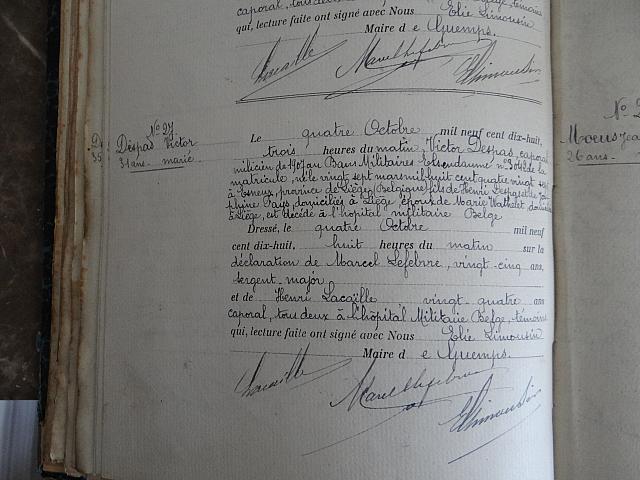 caporal, tous deux
qui, lecture faite ont signé avec Nous Elie Limousin
Maire de Guemps.
Lacaille Marcel Lefebvre E Limousin
N° 27
Despas Victor
31 ans marié
Le quatre Octobre mil neuf cent dix-huit,
trois heures du matin, Victor Despas, caporal
milicien de 1907 au Bain Militaires Ostende de la
matricule, né le vingt sept mars mil huit cent quatre vingt sept
à Esneux, province de Liége, Belgique fils de Henri Despas et de
Pays, domiciliés à Liége, époux de Marie Wathelet, domicilié
à Liége, est décédé à l'hôpital militaire Belge
Dressé, le quatre Octobre mil neuf
cent dix-huit, huit heures du matin sur la
déclaration de Marcel Lefebvre, vingt-cinq ans,
sergent major
et de Henri Lacaille vingt-quatre ans
caporal, tous deux à l'hôpital Militaire Belge, témoins
qui, lecture faite ont signé avec Nous Elie Limousin
Maire de Guemps.
Lacaille Marcel Lefebvre E Limousin
N° 2
Moeus Jea
26 ans